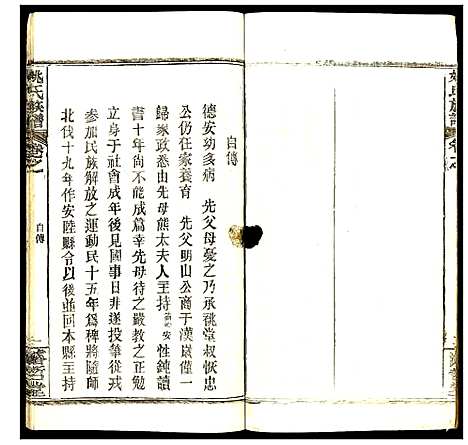 自傳
德安幼多病　先父母憂之乃承祧堂叔恢忠
公仍在家養育　先父明山公商于漢歲僅一
歸家政悉由先母熊太夫人主持　安性鈍讀
書十年尚不能成篇幸先母待之嚴教之正勉
立身于社會成年後見國事日非遂投筆從戎
參加民族解放之運動民十五年爲裨將隨師
北伐十九年作安陸縣令以後並回本縣主持
姚氏族譜
卷之
自傳
姚氏族譜
卷